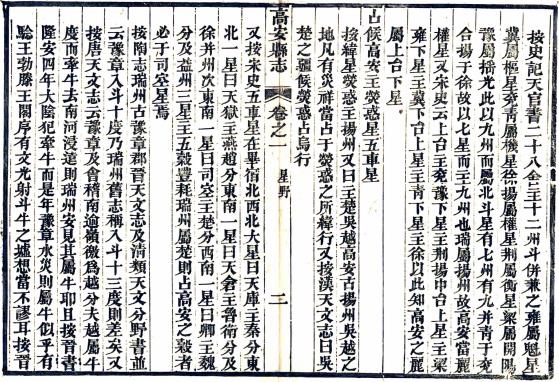 按史記天官書二十八舍主十二州斗併兼之雍屬魁星
冀屬樞星兗青屬機星徐揚屬權星荆屬衡星梁屬開陽
豫屬搖光此以九州而屬北斗星有七州有九并青于兗
合揚于徐故以七星而主九州也瑞屬揚州故高安當屬
權星又宋史云上台上星主兗豫下星主荆揚中台上星主梁
雍下星主冀下台上星主青下星主徐以此知高安之麗
屬上台下星
占候高安王熒惑星五車星
按緯星熒惑主揚州又曰主楚吳越高安古揚州吳越之
地凡有災祥當占于熒惑之所緯行又按漢天文志曰吳
楚之疆候熒惑占鳥行
高安縣志 卷之一 星野 二
又按宋史五車星在畢宿北西北大星曰天庫主秦分東
北一星曰天獄主燕趙分東南一星曰天倉主魯衛分及
徐并州次東南一星曰司空主楚分西南一星曰卿主魏
分及益州三星主五穀豐耗瑞州屬楚則占高安之穀者
必于司空星焉
按陶志瑞州古豫章郡晉天文志及清類天文分野書並
云豫章入斗十度乃瑞州舊志稱入斗十三度則差矣又
按唐天文志云豫章及會稽南逾嶺徼為越分夫越屬牛
度而牽牛去南河浸遠則瑞州安見其屬牛耶且按晉書
隆安四年大陰犯牽牛而是年豫章水災則屬牛似乎有
驗王勃滕王閣序有文光射斗牛之墟想當不謬耳按晉